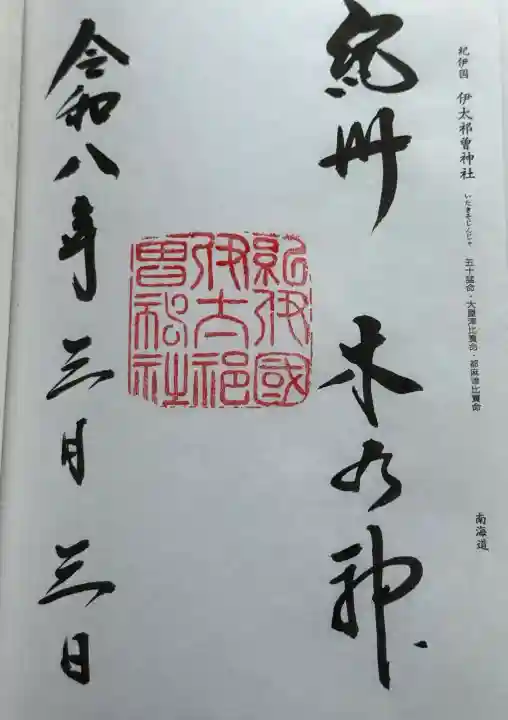 紀伊国 伊太祁曽神社 いたきそじんじゃ 五十猛命・大屋津比賣命・都麻津比賣命 南海道
紀州 木の神
紀伊國
伊太祁
曽神社
令和八年三月三日